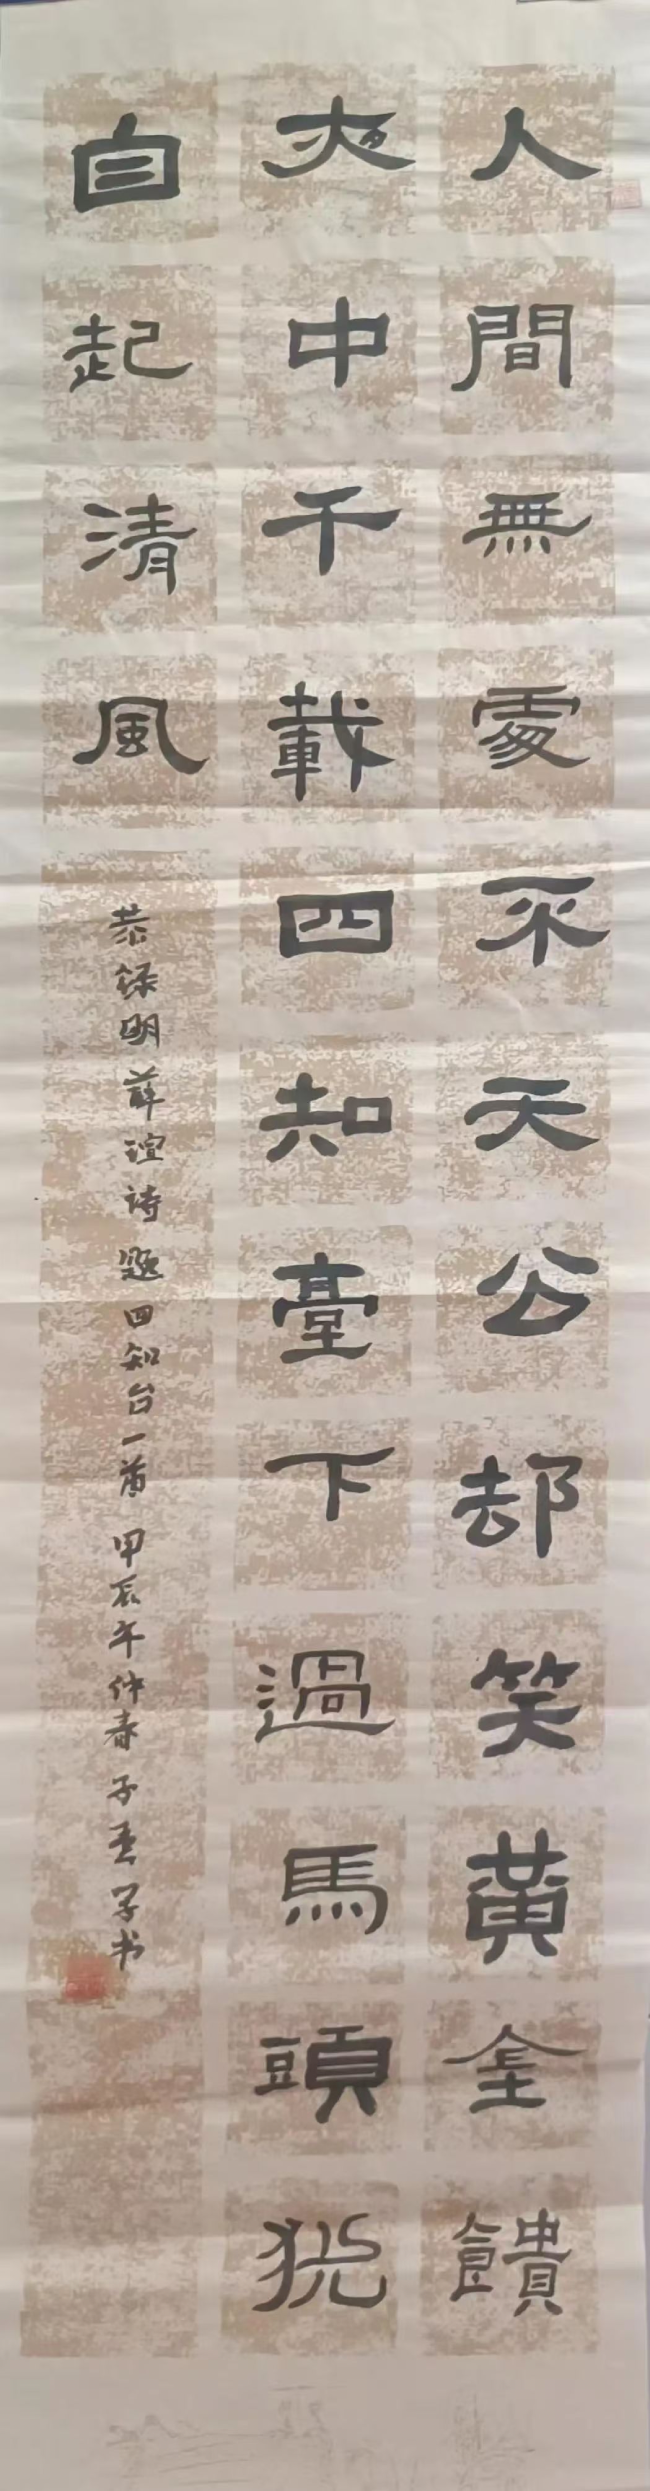 人間無處不天公却笑黃金饋
夾中千載四知臺下過馬頭猶
自起清風
恭錄明薛瑄詩題四知台一首 甲辰年仲春 子吾 学书